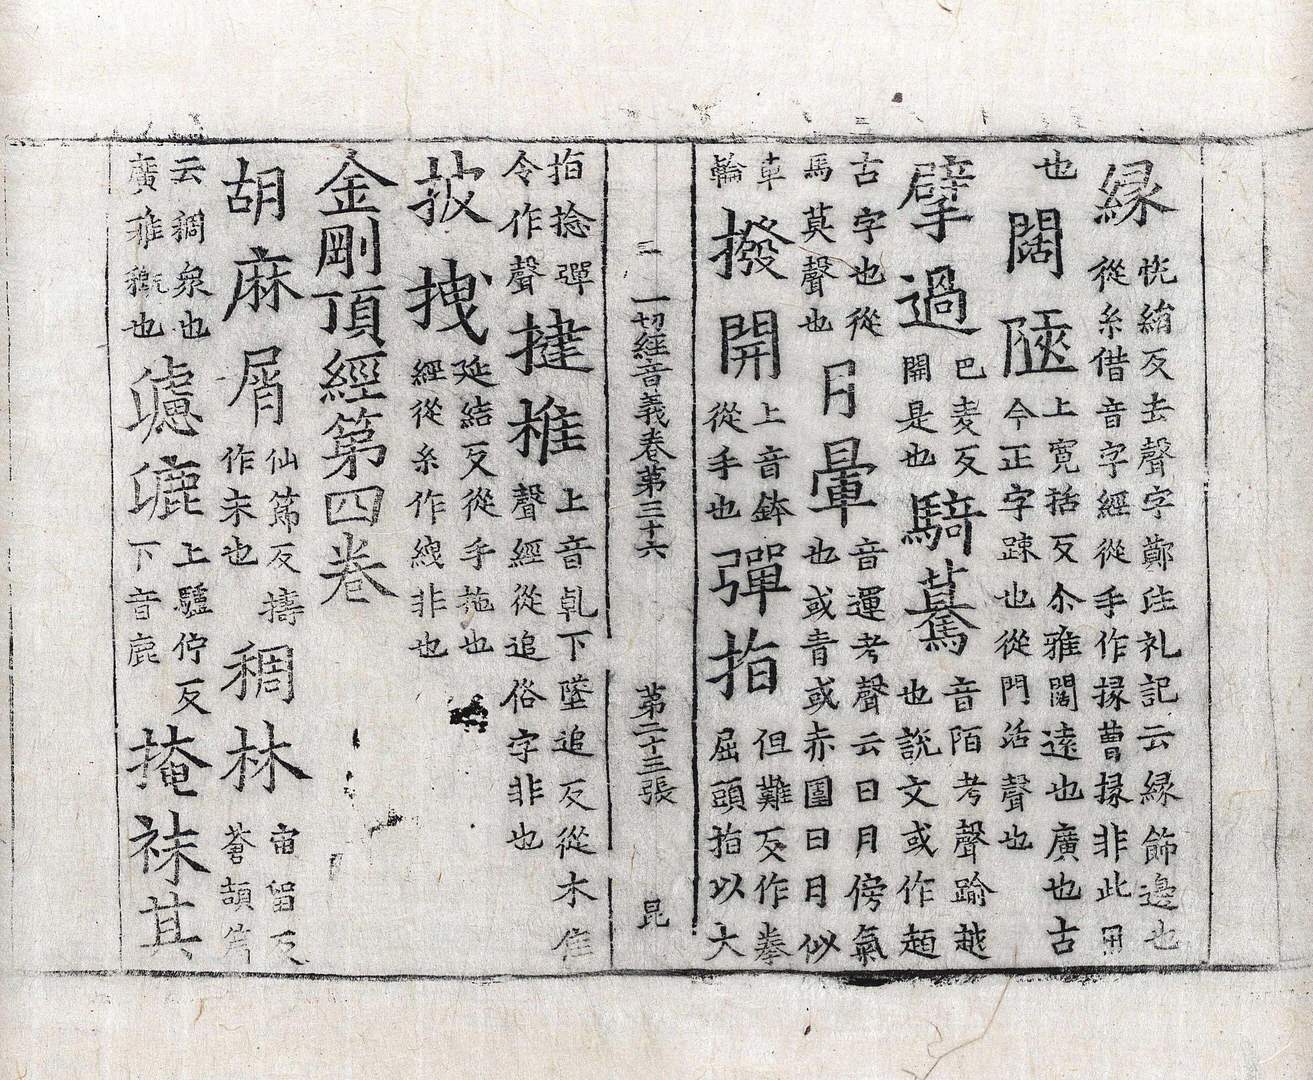 縁 悅絹反去聲字鄭注礼記云縁飾邊也 從糸借音字經從手作掾曹掾非此用
也 闊陿 上寛括反尒雅闊遠也廣也古 今正字踈也從門活聲也
擘過 巴麦反 開是也 騎驀 音陌考聲踰越 也說文或作趏
古字也從 馬莫聲也 月暈 音運考聲云日月傍氣 也或青或赤圍日月似
車 輪 撥開 上音鉢 從手也 彈指 但難反作拳 屈頭指以大
二 一切經音義卷第三十六 第二十三張 昆
指捻彈 令作聲 揵椎 上音乹下墜追反從木隹 聲經從追俗字非也
披拽 延結反從手拖也 經從糸作絏非也
金剛頂經第四卷
胡麻屑 仙節反擣 作末也 稠林 宙留反 蒼頡篇
云稠衆也 廣雅穊也 上驢佇反 下音鹿 掩袜其